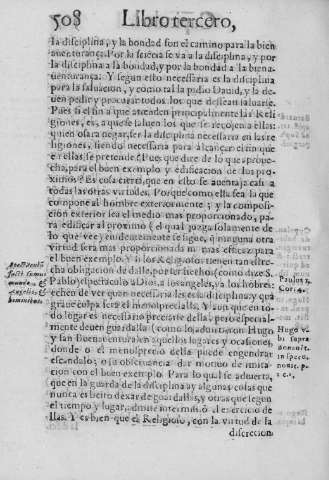 508 Libro tercero,
la disciplina, y la bondad son el camino para la bien
auenturança. Por la sciẽcia se va a la disciplina, y por
la disciplina a la bondad, y por la bondad a la biena-
uenturança. Y segun esto necessaria es la disciplina
para la saluacion, y como tal la pidio Dauid, y la de-
uen pedir y procurar todos los que dessean saluarse.
Pues si el fin a que atienden principalmente las Reli
giones, es, a que se saluen los que se recojen a ellas:
quien osara negar, ser la disciplina necessaria en las re
ligiones, siendo necessaria para alcançar el fin que
en ellas se pretende? Pues que dire de lo que aproue-
cha, para el buen exemplo y edificacion de los pro-
ximos? Es cosa cierto, que en esto se auentaja casi a
todas las otras virtudes. Porque como ella sea la que
compone al hombre exteriormente; y la composi-
cion exterior sea el medio mas proporcionado, pa-
ra edificar al proximo (el qual juzga solamente de
lo que vee) euidentemente se sigue, q̃ ninguna otra
virtud sera mas proporcionada ni mas eficaz para
el buen exemplo. Y si los Religiosos tienen tan estre-
cha obligacion de dalle, por ser hechos (como dize S.
Pablo) espectaculo a Dios, a los angeles, y a los hõbres:
echen de ver quan necessaria les es la disciplina, y quã
grande culpa sera el menospreciarla. Y aun que en to-
do lugar es necessario preciarse della, pero especial-
mente deuen guardalla (como lo aduirtieron Hugo
y san Buenauentura) en aquellos lugares y ocasiones,
donde o el menosprecio della puede engendrar
escandalo; o la obseruancia dar motiuo de imita-
cion con el buen exemplo. Para lo qual se aduierta,
que en la guarda de la disciplina ay algunas cosas que
nunca es licito dexar de guardallas, y otras que segun
el tiempo y lugar, admite intermissiõ el exercicio de
llas. Y es bien que el Religioso, con la virtud de la
discrecion
Spectaculũ
facti sumus
mundo, &
angelis &
hominibus
Paulus 1.
Cor. 4.
Hugo v-
bi supra